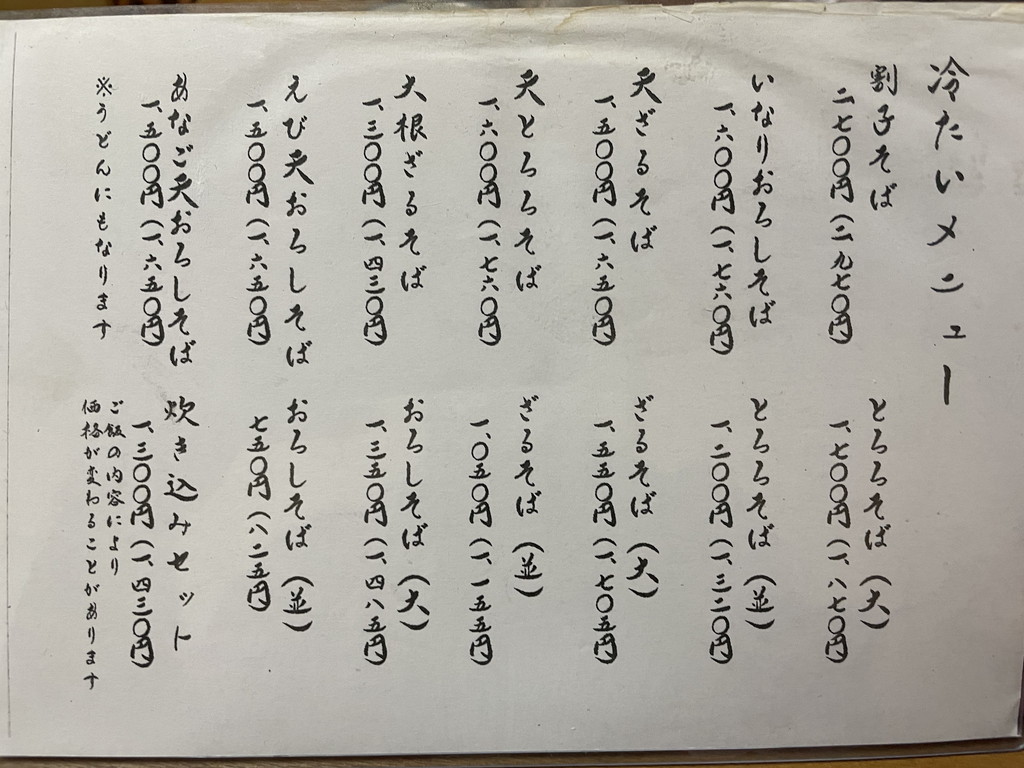 冷たいメニュー
割子そば
二、七〇〇円（二、九七〇円）
いなりおろしそば
一、六〇〇円（一、七六〇円）
天ざるそば
一、五〇〇円（一、六五〇円）
天とろろそば
一、六〇〇円（一、七六〇円）
大根ざるそば
一、三〇〇円（一、四三〇円）
えび天おろしそば
一、五〇〇円（一、六五〇円）
あなご天おろしそば
一、五〇〇円（一、六五〇円）
※うどんにもなります
とろろそば（大）
一、七〇〇円（一、八七〇円）
とろろそば（並）
一、二〇〇円（一、三二〇円）
ざるそば（大）
一、五五〇円（一、七〇五円）
ざるそば（並）
一、〇五〇円（一、一五五円）
おろしそば（大）
一、三五〇円（一、四八五円）
おろしそば（並）
七五〇円（八二五円）
炊き込みセット
一、三〇〇円（一、四三〇円）
ご飯の内容により
価格が変わることがあります